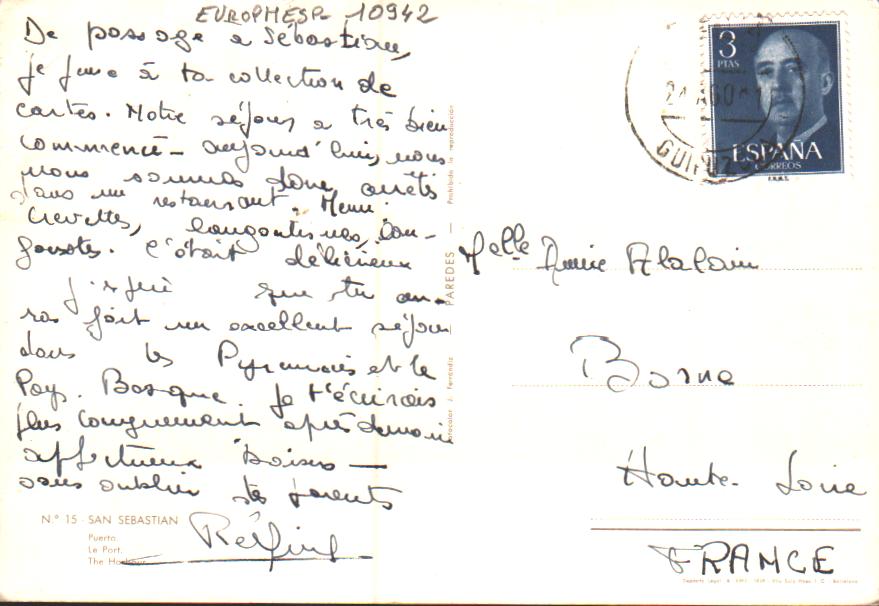 EUROPMESP 10942
De passage a Sébastian,
je pense à ta collection de
cartes. Notre séjour a très bien
commencé - aujourd'hui, nous
nous sommes donc arrêtés
dans un restaurant. Menu :
Crevettes, langoustines, lan-
goustes. C'était délicieux
J'espère que tu au-
ras fait un excellent séjour
dans les Pyrennées et le
Pays Basque. Je t'écrirais
plus longuement après demain
affectueux Baisers —
sans oublier tes parents
Régine
N.º 15 - SAN SEBASTIAN
Puerto.
Le Port.
The Harbour.
PAREDES — Prohibida la reproducción
J. Ferrándiz
3
PTAS
ESPAÑA
CORREOS
F.N.M.T.
AGO
GUIPUZCOA
Melle Annie Alalain
Borne
Haute-Loire
FRANCE